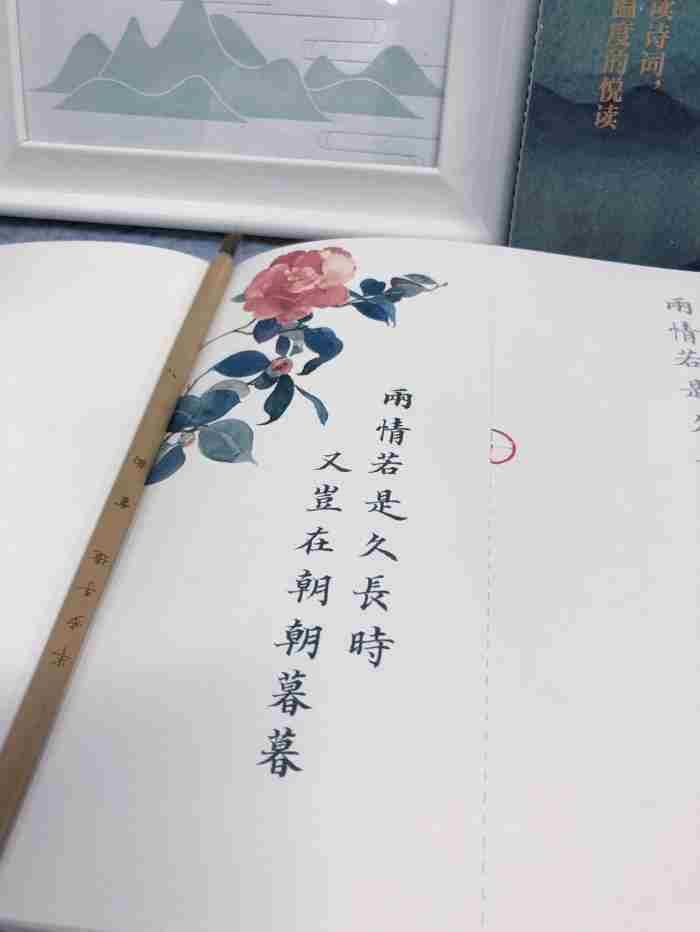 读诗词，
温度的悦读
兩情若是久長時
又豈在朝朝暮暮
兩情若是